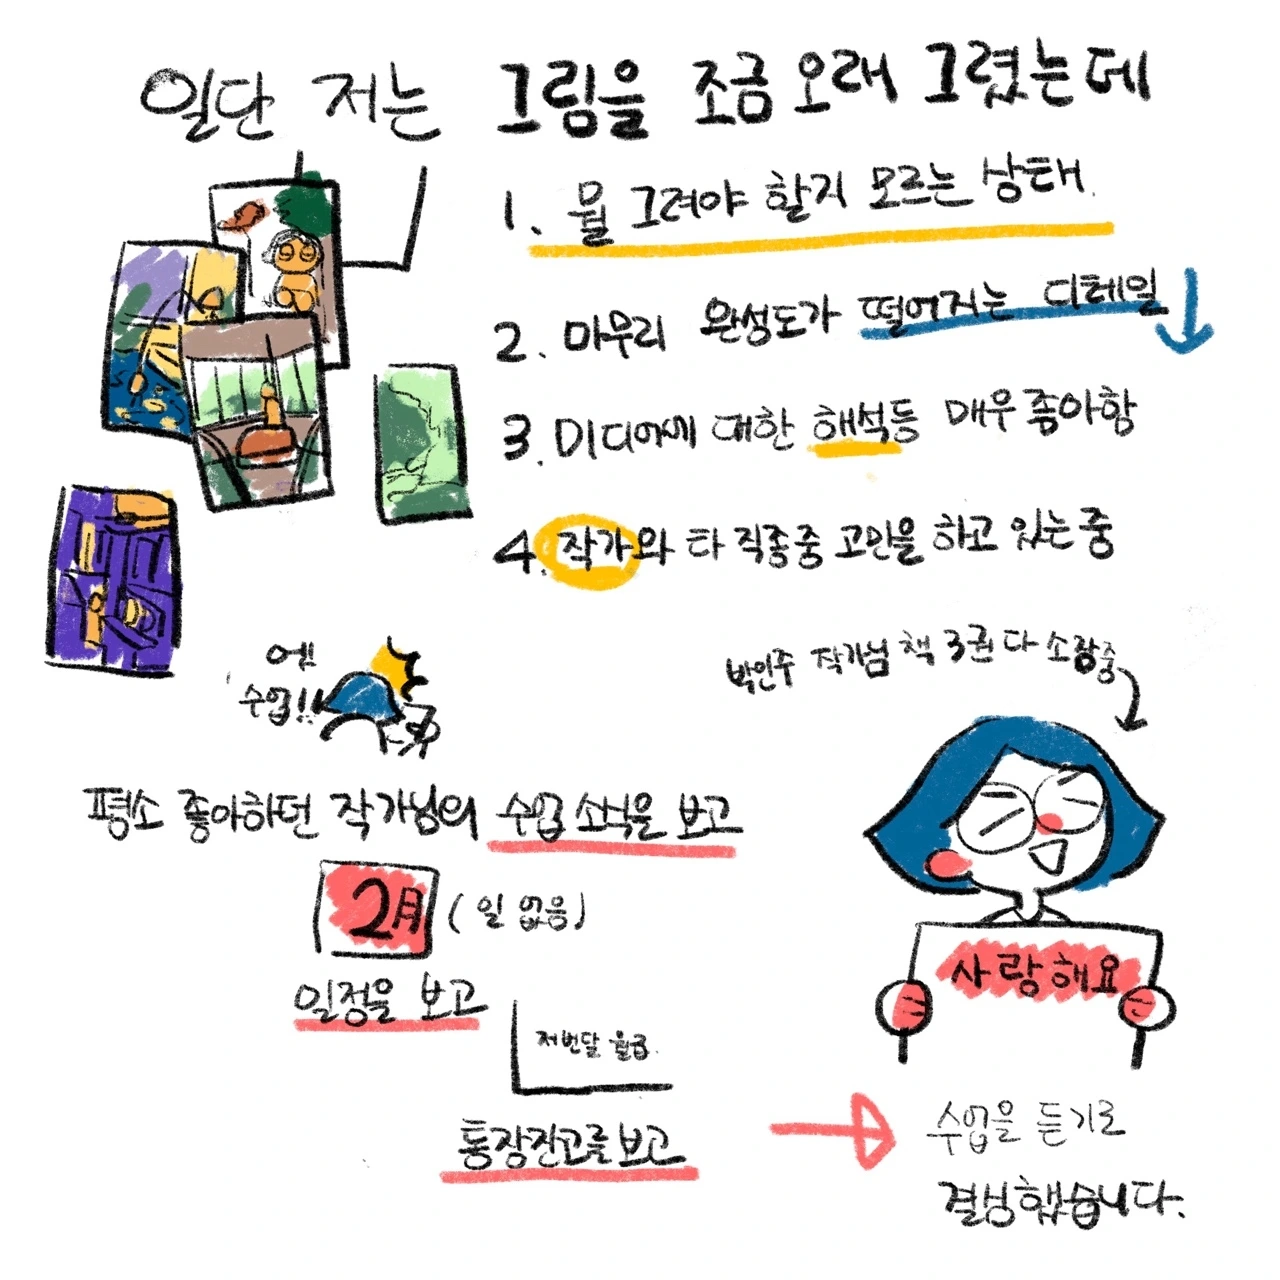 일단 저는 그림을 조금 오래 그렸는데
1. 뭘 그려야 할지 모르는 상태.
2. 마무리 완성도가 떨어지는 디테일
3. 미디어에 대한 해석등 매우 좋아함
4. 작가와 타 직종중 고민을 하고 있는 중
어!!
수업!!
박인주 작가님 책 3권 다 소장중
평소 좋아하던 작가님의 수업 소식을 보고
2月 (일 없음)
일정을 보고
저번달 월급
통장잔고를 보고
사랑해요
수업을 듣기로
결심했습니다.